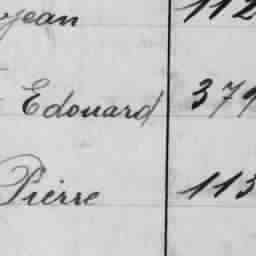 Jean 112
Edouard 379
Pierre 113